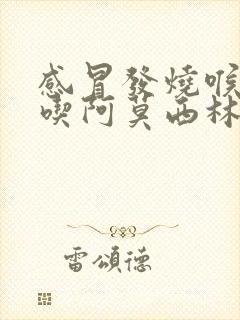 感冒發燒喉
喫阿莫西林
雷頌德